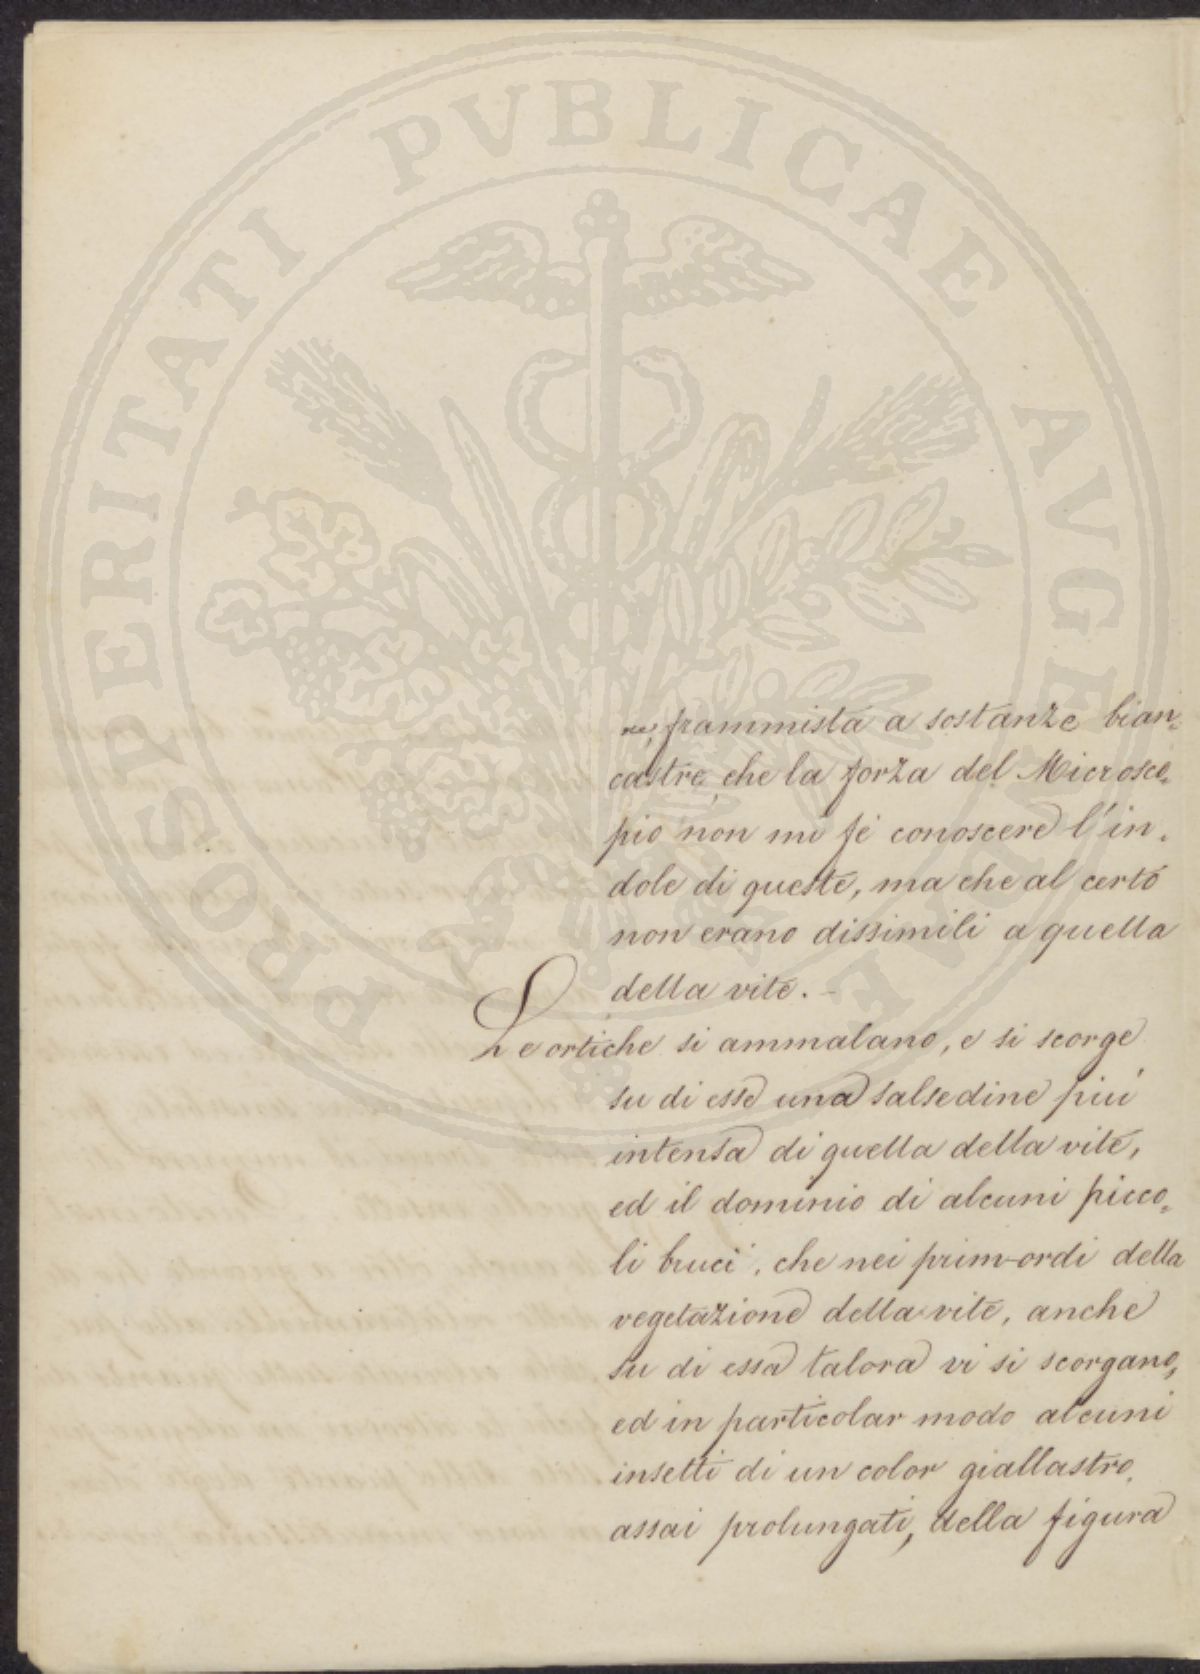 PROSPERITATI PVBLICAE AVGENDAE
re, frammista a sostanze bian=
castre, che la forza del Microsco=
pio non mi fé conoscere l'in=
dole di queste, ma che al certo
non erano dissimili a quella
della vite. –
Le ortiche si ammalano, e si scorge
su di esse una salsedine piú
intensa di quella della vite,
ed il dominio di alcuni picco=
li bruci, che nei prim-ordi della
vegetazione della vite, anche
su di essa talora vi si scorgano,
ed in particolar modo alcuni
insetti di un color giallastro
assai prolungati, della figura